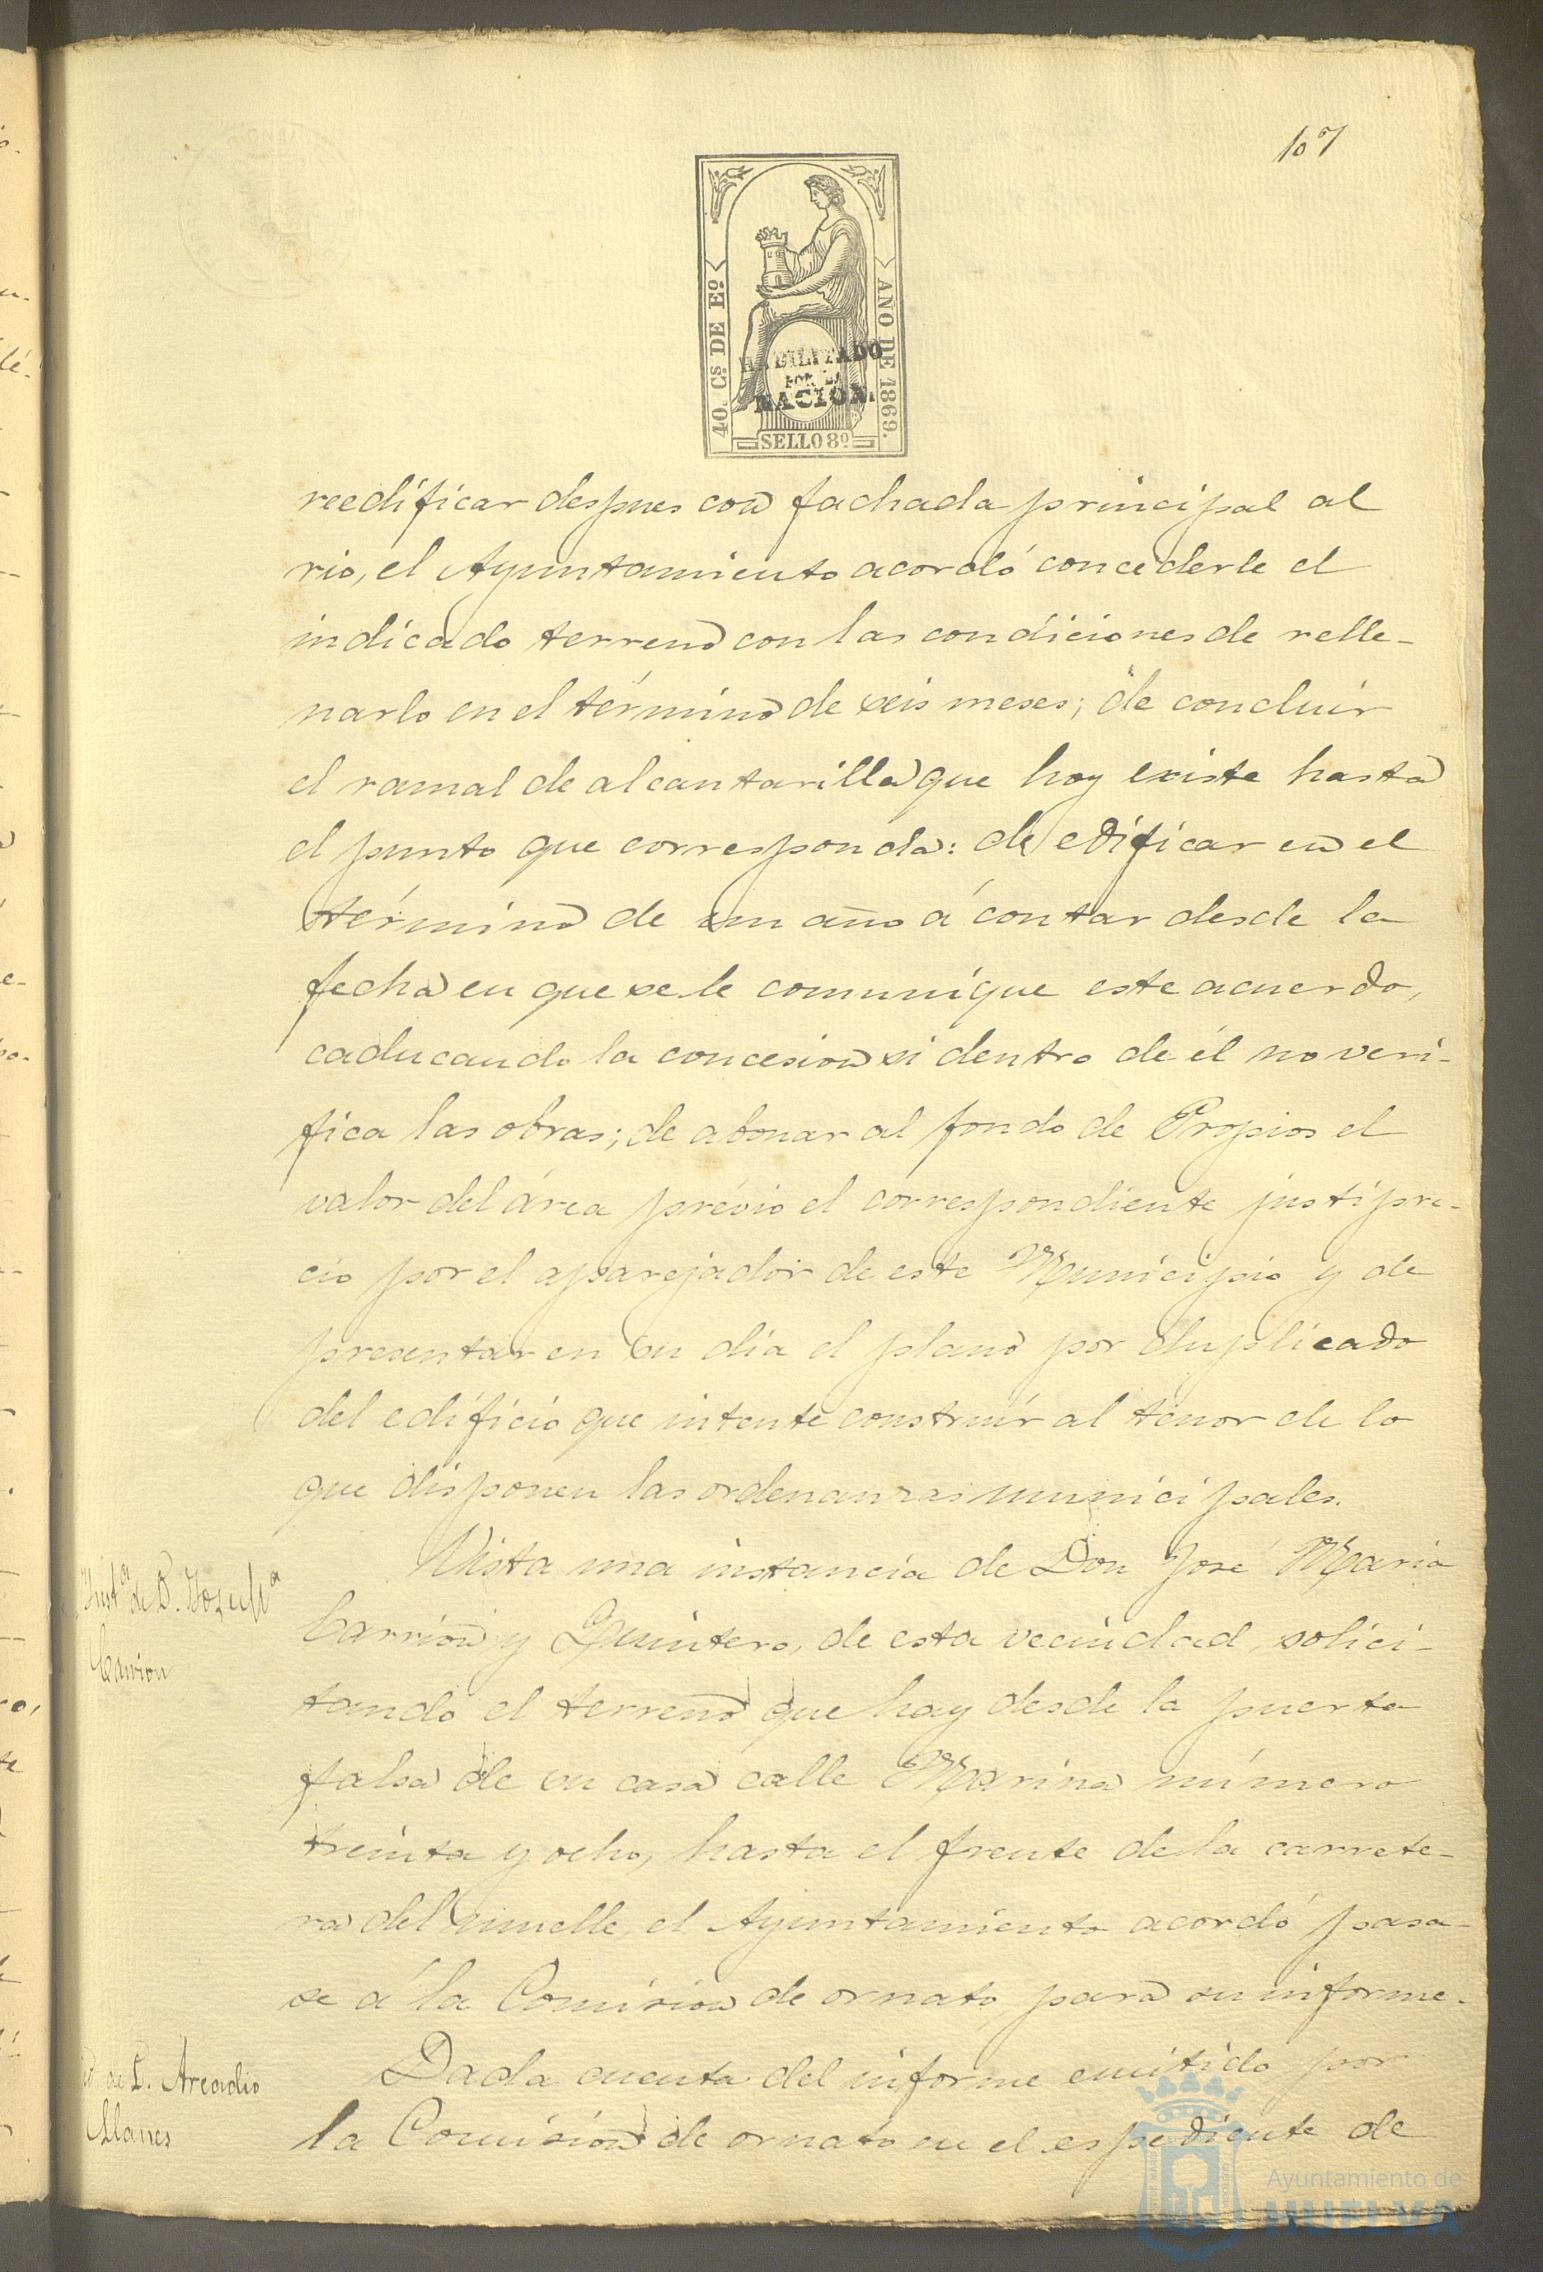 107
40. Cs. DE Eo.
AÑO DE 1869.
HABILITADO
POR LA
NACION.
SELLO 8º
reedificar despues con fachada principal al
rio, el Ayuntamiento acordó concederle el
indicado terreno con las condiciones de relle-
narlo en el término de seis meses; de concluir
el ramal de alcantarilla que hoy existe hasta
el punto que corresponda: de edificar en el
término de un año á contar desde la
fecha en que se le comunique este acuerdo,
caducando la concesion si dentro de él no veri-
fica las obras; de abonar al fondo de Propios el
valor del área prévio el correspondiente justipre-
cio por el aparejador de este Municipio y de
presentar en su dia el plano por duplicado
del edificio que intente construir al tenor de lo
que disponen las ordenanzas municipales.
Vista una instancia de Don José Maria
Carrion y Quintero, de esta vecindad, solici-
tando el terreno que hay desde la puerta
falsa de su casa calle Marina número
treinta y ocho, hasta el frente de la carrete-
ra del muelle, el Ayuntamiento acordó pasa-
se á la Comision de ornato para su informe.
Dada cuenta del informe emitido por
la Comision de ornato en el espediente de
Instª de D. José Mª
Carrion
de D. Arcadio
Llanes
Ayuntamiento de
HUELVA